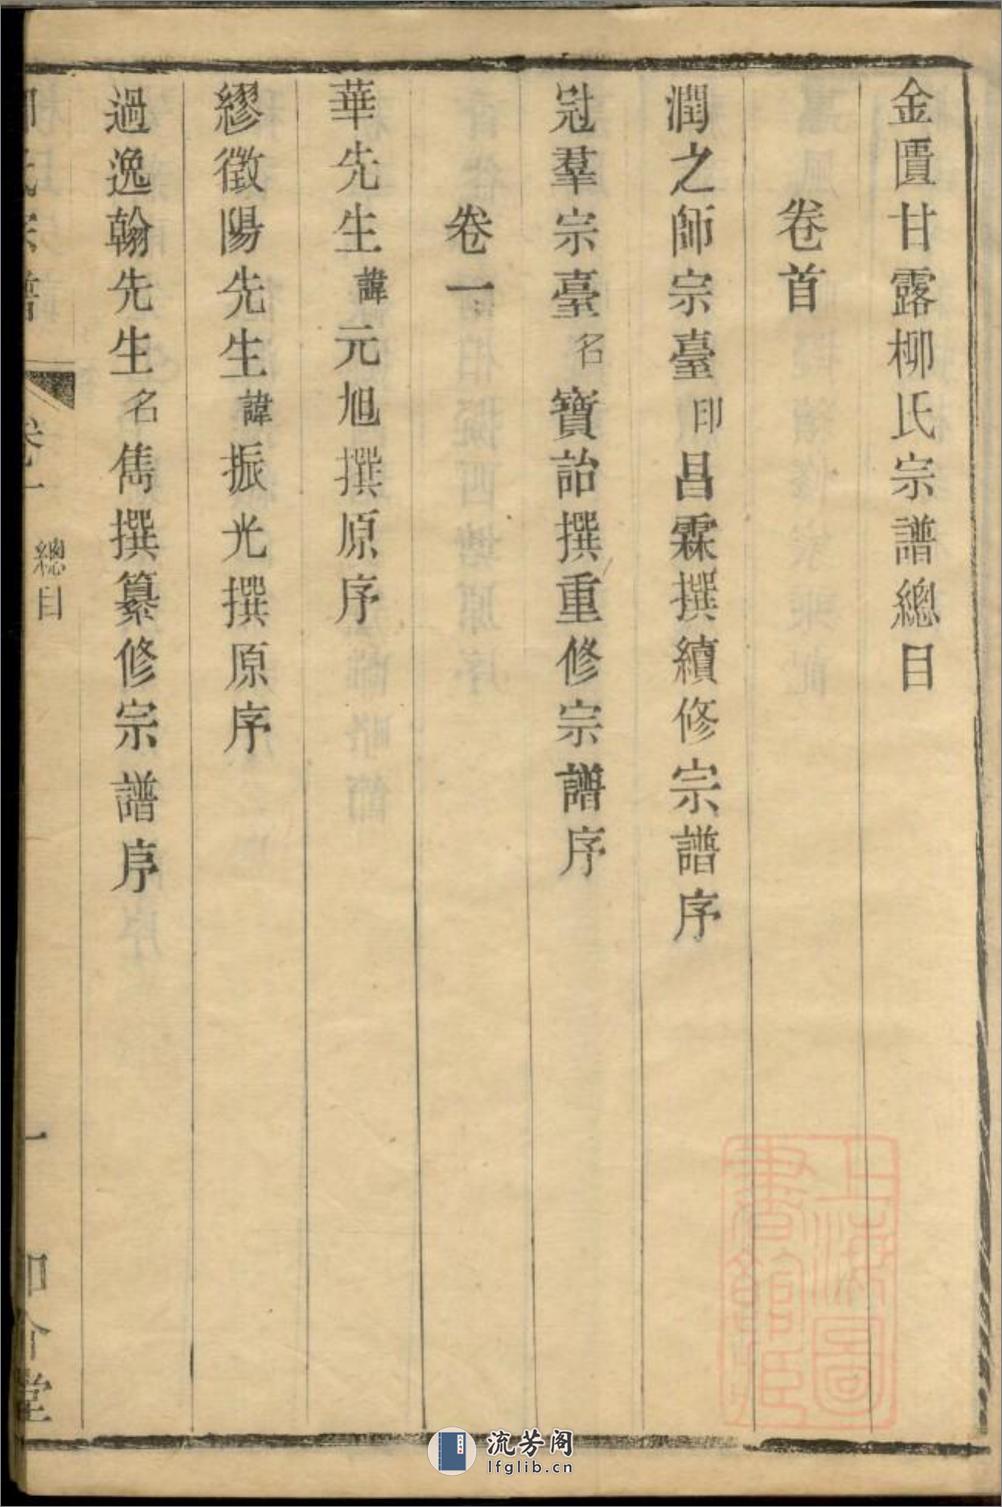 金匱甘露柳氏宗譜總目
卷首
潤之師宗臺印昌霖撰續修宗譜序
冠羣宗臺名寶詒撰重修宗譜序
卷一
華先生諱元旭撰原序
繆徵陽先生諱振光撰原序
過逸翰先生名雋撰纂修宗譜序
柳氏宗譜 卷一 總目 一
上海圖書館藏
流芳阁
lfglib.cn